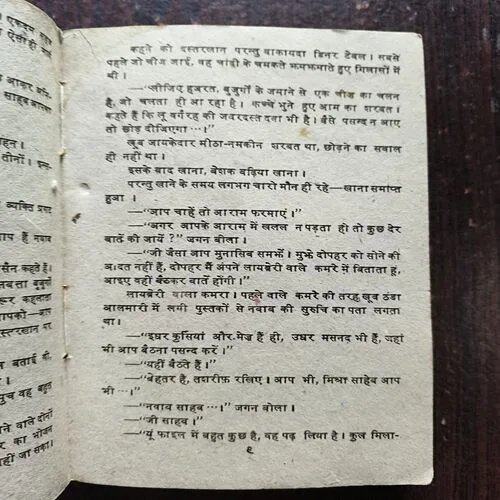 एकदम सहज
कहने को दस्तरखान परन्तु बाकायदा डिनर टेबल। सबसे
पहले जो चीज आई, वह चांदी के चमकते झमझमाते हुए गिलासों में
थी।
—"लीजिए हुजरत, बुजुर्गो के जमाने से एक चीज का चलन
है, जो चलता ही आ रहा है। कच्चे भुने हुए आम का शरबत।
कहते हैं कि लू वगैरह की जबरदस्त दवा भी है। वैसे पसन्द न आए
तो छोड़ दीजिएगा ···।"
खूब जायकेदार मीठा-नमकीन शरबत था, छोड़ने का सवाल
ही नहीं था।
इसके बाद खाना, बेशक बढ़िया खाना।
परन्तु खाने के समय लगभग चारों मौन ही रहे—खाना समाप्त
हुआ।
—"आप चाहें तो आराम फरमाएं।"
—"अगर आपके आराम में खलल न पड़ता हो तो कुछ देर
बातें की जायें?" जगन बोला।
—"जी जैसा आप मुनासिब समझें। मुझे दोपहर को सोने की
आदत नहीं हैं, दोपहर मैं अपने लायब्रेरी वाले कमरे में बिताता हूं,
आइए वहीं बैठकर बातें होंगी।"
लायब्रेरी वाला कमरा। पहले वाले कमरे की तरह खूब ठंडा
आलमारी में लगी पुस्तकों से नवाब की सुरुचि का पता लगता
था।
—"इधर कुर्सियां और मेज हैं ही, उधर मसनद भी हैं, जहां
भी आप बैठना पसन्द करें।"
—"यहीं बैठते हैं।"
—"बेहतर है, तशरीफ़ रखिए। आप भी, मिश्रा साहेब आप
भी ···।"
—"नवाब साहब ···।" जगन बोला।
—"जी साहब।"
—"यूं फाइल में बहुत कुछ है, वह पढ़ लिया है। कुल मिला-
९